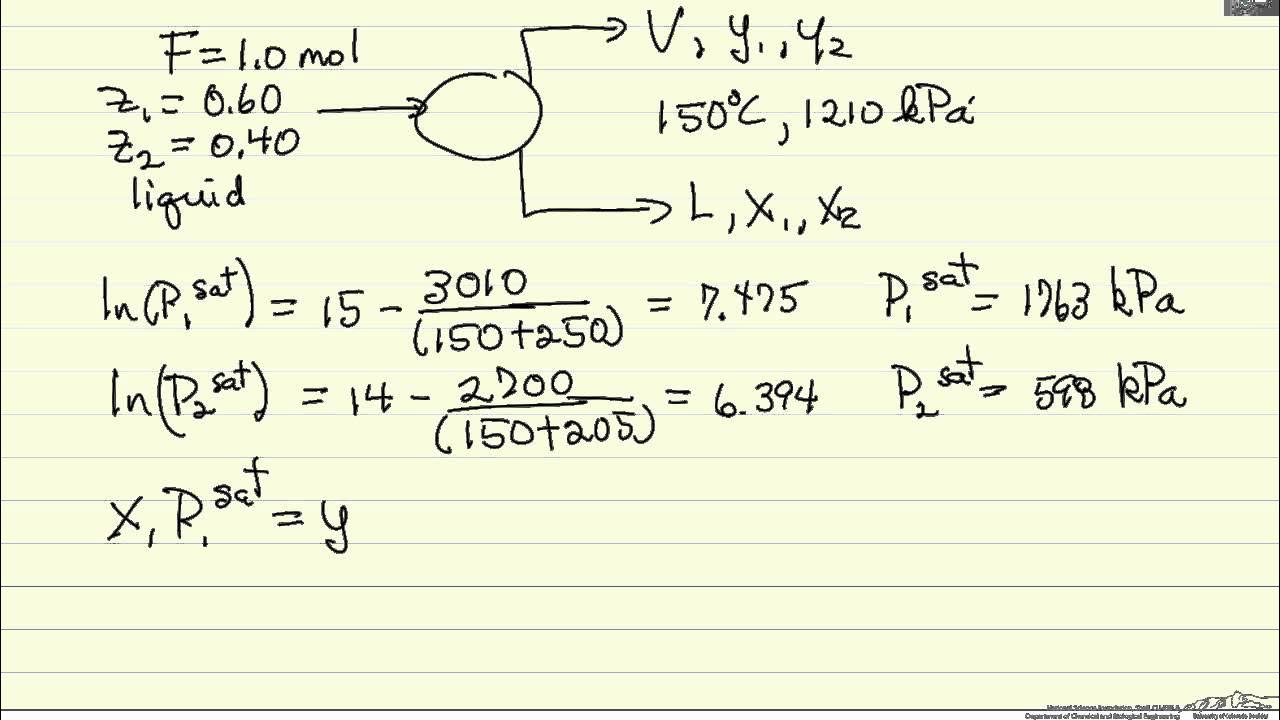 F = 1.0 mol
z₁ = 0.60
z₂ = 0.40
liquid
V, y₁, y₂
150°C, 1210 kPa
L, x₁, x₂
ln(P₁^sat) = 15 - 3010/(150+250) = 7.475 P₁^sat = 1763 kPa
ln(P₂^sat) = 14 - 2700/(150+205) = 6.394 P₂^sat = 598 kPa
x₁ P₁^sat = y
Department of Chemical and Biological Engineering